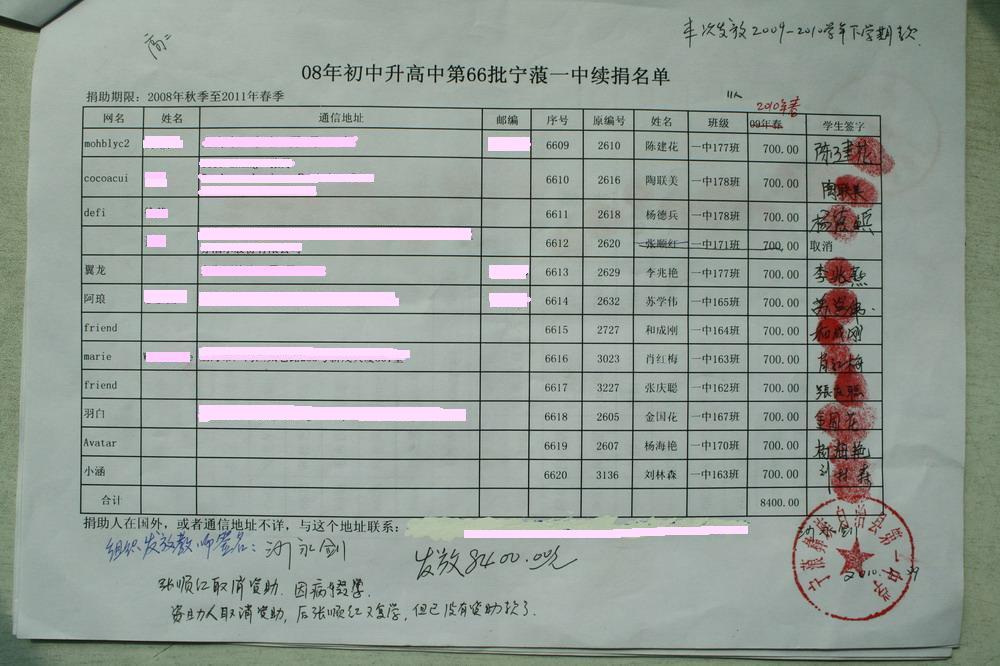 高二
本次发放2009-2010学年下学期款
08年初中升高中第66批宁蒗一中续捐名单
捐助期限：2008年秋季至2011年春季
11人
2010年春
网名 姓名 通信地址 邮编 序号 原编号 姓名 班级 09年春 学生签字
mohblyc2 6609 2610 陈建花 一中177班 700.00 陈建花
cocoacui 6610 2616 陶联美 一中178班 700.00 陶联美
defi 6611 2618 杨德兵 一中178班 700.00 杨德兵
6612 2620 张顺红 一中171班 700.00 取消
翼龙 6613 2629 李兆艳 一中177班 700.00 李兆燕
阿琅 6614 2632 苏学伟 一中165班 700.00 苏学伟
friend 6615 2727 和成刚 一中164班 700.00 和成刚
marie 6616 3023 肖红梅 一中163班 700.00 肖红梅
friend 6617 3227 张庆聪 一中162班 700.00 张庆聪
羽白 6618 2605 金国花 一中167班 700.00 金国花
Avatar 6619 2607 杨海艳 一中170班 700.00 杨海艳
小涵 6620 3136 刘林森 一中163班 700.00 刘林森
合计 8400.00
捐助人在国外，或者通信地址不详，与这个地址联系：
组织发放教师签名：沙永剑
发放8400.00元
宁蒗彝族自治县第一中学
张顺红取消资助．因病辍学．
资助人取消资助，后张顺红又复学，但已没有资助款了．